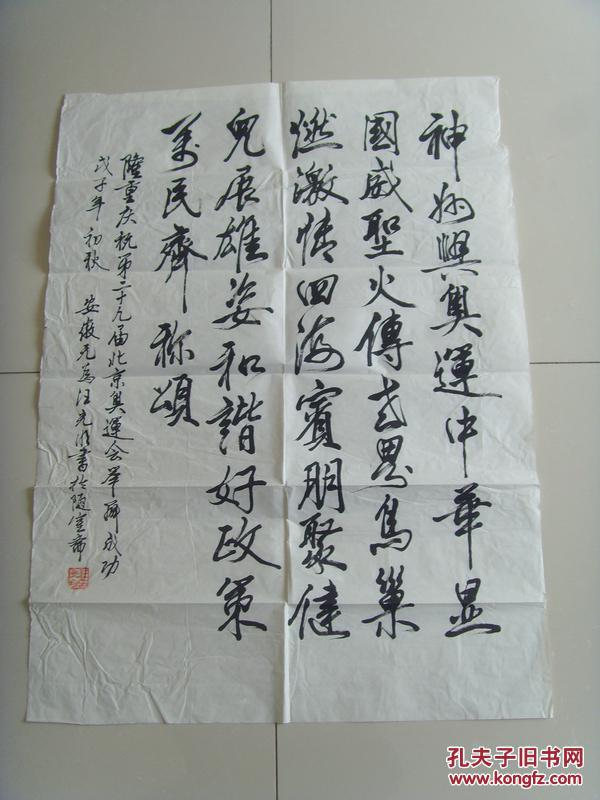 神州兴奥運中華显
國威聖火傳世界鳥巢
燃激情四海賓朋聚健
兒展雄姿和諧好政策
萬民齊称頌
陸重庆祝第二十九届北京奥运会举办成功
戊子年初秋 安徽无为汪光明書於随笔斋
孔夫子旧书网
www.kongfz.com